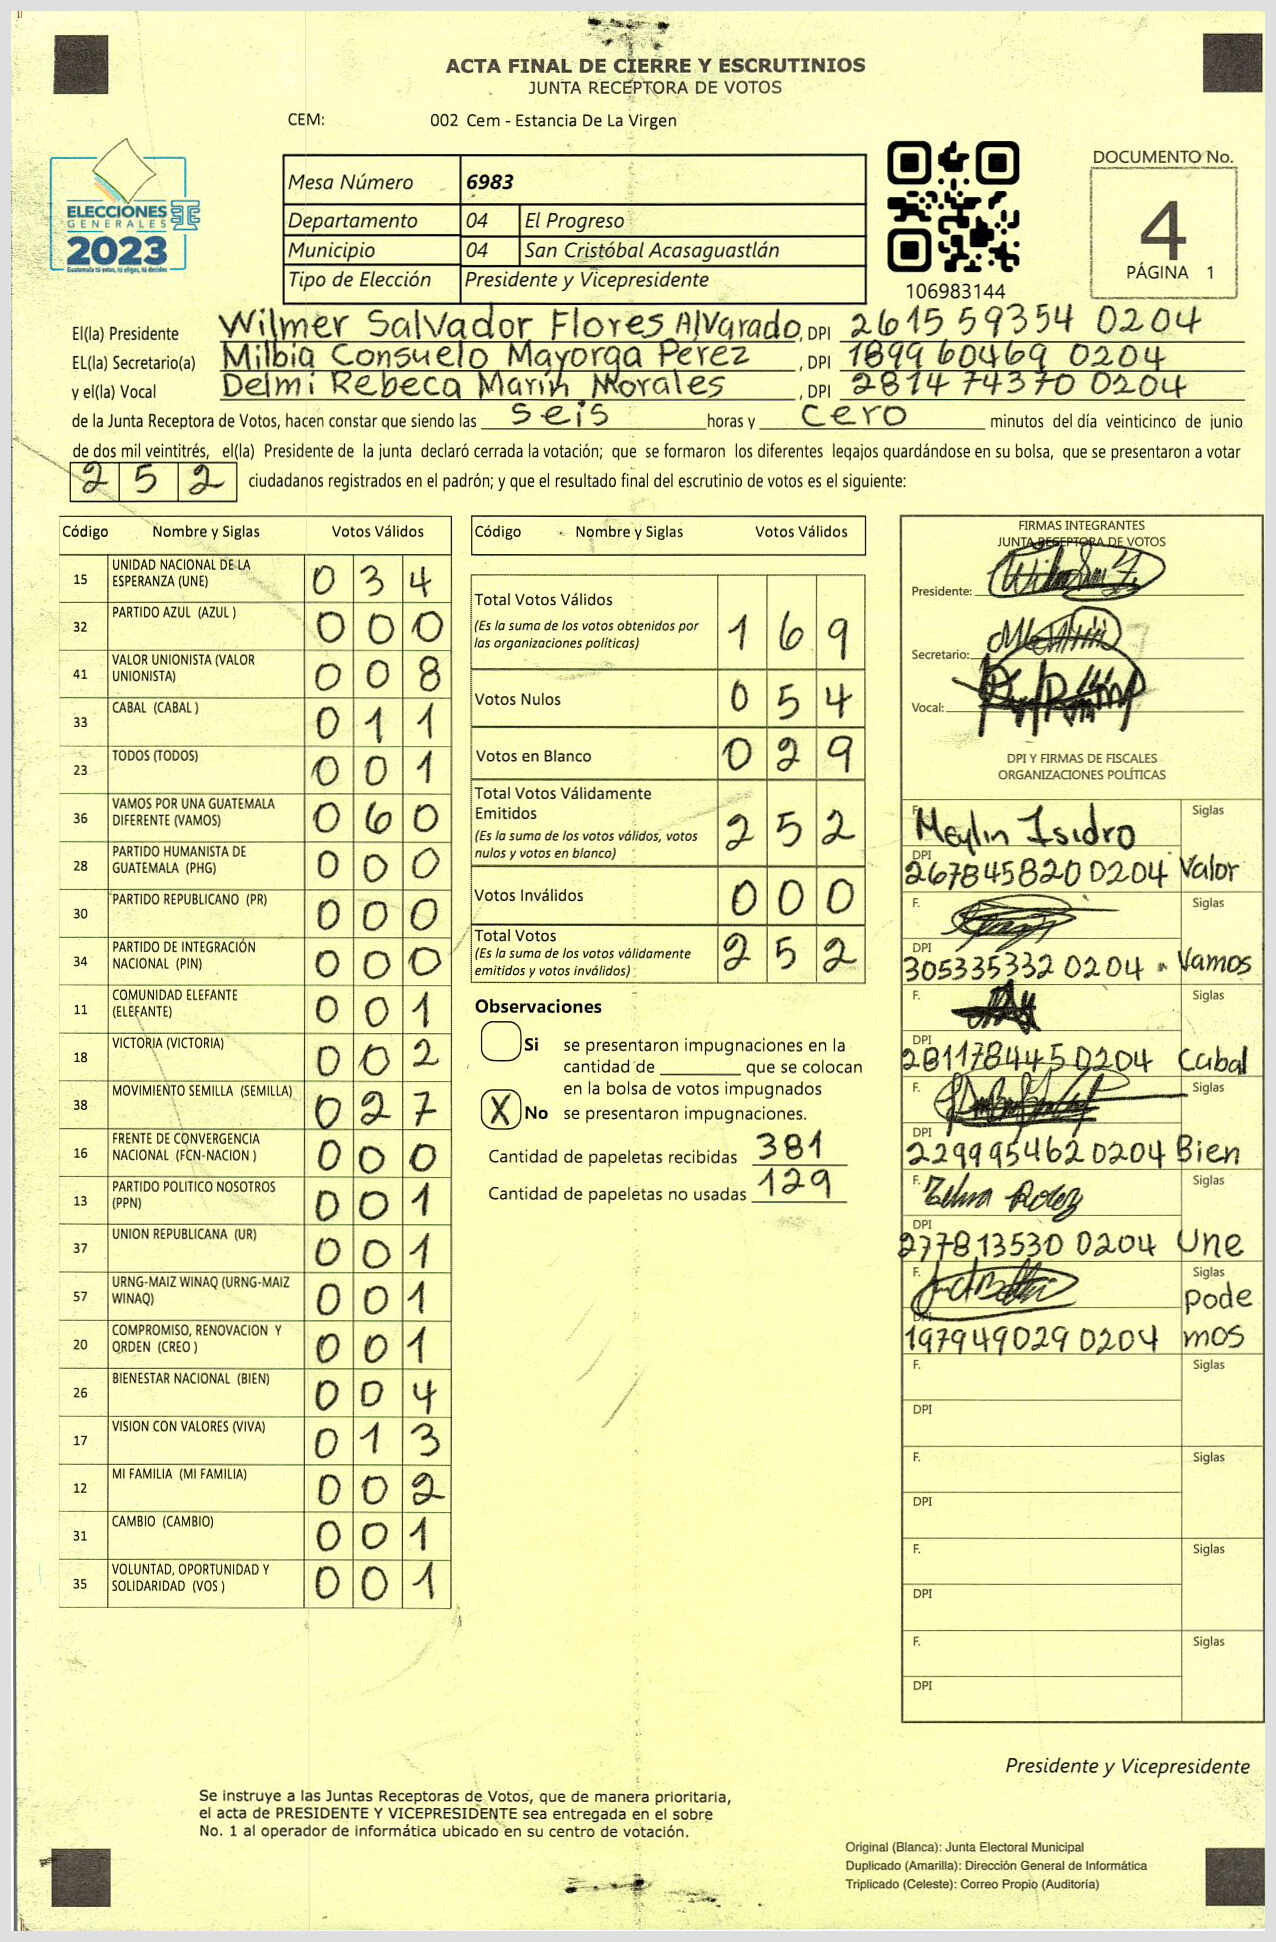 ACTA FINAL DE CIERRE Y ESCRUTINIOS
JUNTA RECEPTORA DE VOTOS
CEM: 002 Cem - Estancia De La Virgen
ELECCIONES
GENERALES
2023
Mesa Número 6983
Departamento 04 El Progreso
Municipio 04 San Cristóbal Acasaguastlán
Tipo de Elección Presidente y Vicepresidente
106983144
DOCUMENTO No.
4
PÁGINA 1
El(la) Presidente Wilmer Salvador Flores Alvarado, DPI 2615 59354 0204
EL(la) Secretario(a) Milbia Consuelo Mayorga Perez, DPI 1899 60469 0204
y el(la) Vocal Delmi Rebeca Marín Morales, DPI 2814 74370 0204
de la Junta Receptora de Votos, hacen constar que siendo las seis horas y cero minutos del día veinticinco de junio
de dos mil veintitrés, el(la) Presidente de la junta declaró cerrada la votación; que se formaron los diferentes legajos guardándose en su bolsa, que se presentaron a votar
252 ciudadanos registrados en el padrón; y que el resultado final del escrutinio de votos es el siguiente:
Código Nombre y Siglas Votos Válidos
15 UNIDAD NACIONAL DE LA ESPERANZA (UNE) 034
32 PARTIDO AZUL (AZUL ) 000
41 VALOR UNIONISTA (VALOR UNIONISTA) 008
33 CABAL (CABAL ) 011
23 TODOS (TODOS) 001
36 VAMOS POR UNA GUATEMALA DIFERENTE (VAMOS) 060
28 PARTIDO HUMANISTA DE GUATEMALA (PHG) 000
30 PARTIDO REPUBLICANO (PR) 000
34 PARTIDO DE INTEGRACIÓN NACIONAL (PIN) 000
11 COMUNIDAD ELEFANTE (ELEFANTE) 001
18 VICTORIA (VICTORIA) 002
38 MOVIMIENTO SEMILLA (SEMILLA) 027
16 FRENTE DE CONVERGENCIA NACIONAL (FCN-NACION ) 000
13 PARTIDO POLITICO NOSOTROS (PPN) 001
37 UNION REPUBLICANA (UR) 001
57 URNG-MAIZ WINAQ (URNG-MAIZ WINAQ) 001
20 COMPROMISO, RENOVACION Y ORDEN (CREO ) 001
26 BIENESTAR NACIONAL (BIEN) 004
17 VISION CON VALORES (VIVA) 013
12 MI FAMILIA (MI FAMILIA) 002
31 CAMBIO (CAMBIO) 001
35 VOLUNTAD, OPORTUNIDAD Y SOLIDARIDAD (VOS ) 001
Código Nombre y Siglas Votos Válidos
Total Votos Válidos
(Es la suma de los votos obtenidos por las organizaciones políticas) 169
Votos Nulos 054
Votos en Blanco 029
Total Votos Válidamente Emitidos
(Es la suma de los votos válidos, votos nulos y votos en blanco) 252
Votos Inválidos 000
Total Votos
(Es la suma de los votos válidamente emitidos y votos inválidos) 252
Observaciones
Si se presentaron impugnaciones en la
cantidad de ________ que se colocan
en la bolsa de votos impugnados
X No se presentaron impugnaciones.
Cantidad de papeletas recibidas 381
Cantidad de papeletas no usadas 129
FIRMAS INTEGRANTES
JUNTA RECEPTORA DE VOTOS
Presidente:
Secretario:
Vocal:
DPI Y FIRMAS DE FISCALES
ORGANIZACIONES POLÍTICAS
F. Meylin Isidro Siglas
DPI 267845820 0204 Valor
F. Siglas
DPI 305335332 0204 Vamos
F. Siglas
DPI 281178445 0204 Cabal
F. Siglas
DPI 229995462 0204 Bien
F. Siglas
DPI 277813530 0204 Une
F. Siglas
DPI 197949029 0204 pode mos
F. Siglas
DPI
F. Siglas
DPI
F. Siglas
DPI
F. Siglas
DPI
Presidente y Vicepresidente
Se instruye a las Juntas Receptoras de Votos, que de manera prioritaria,
el acta de PRESIDENTE Y VICEPRESIDENTE sea entregada en el sobre
No. 1 al operador de informática ubicado en su centro de votación.
Original (Blanca): Junta Electoral Municipal
Duplicado (Amarilla): Dirección General de Informática
Triplicado (Celeste): Correo Propio (Auditoría)